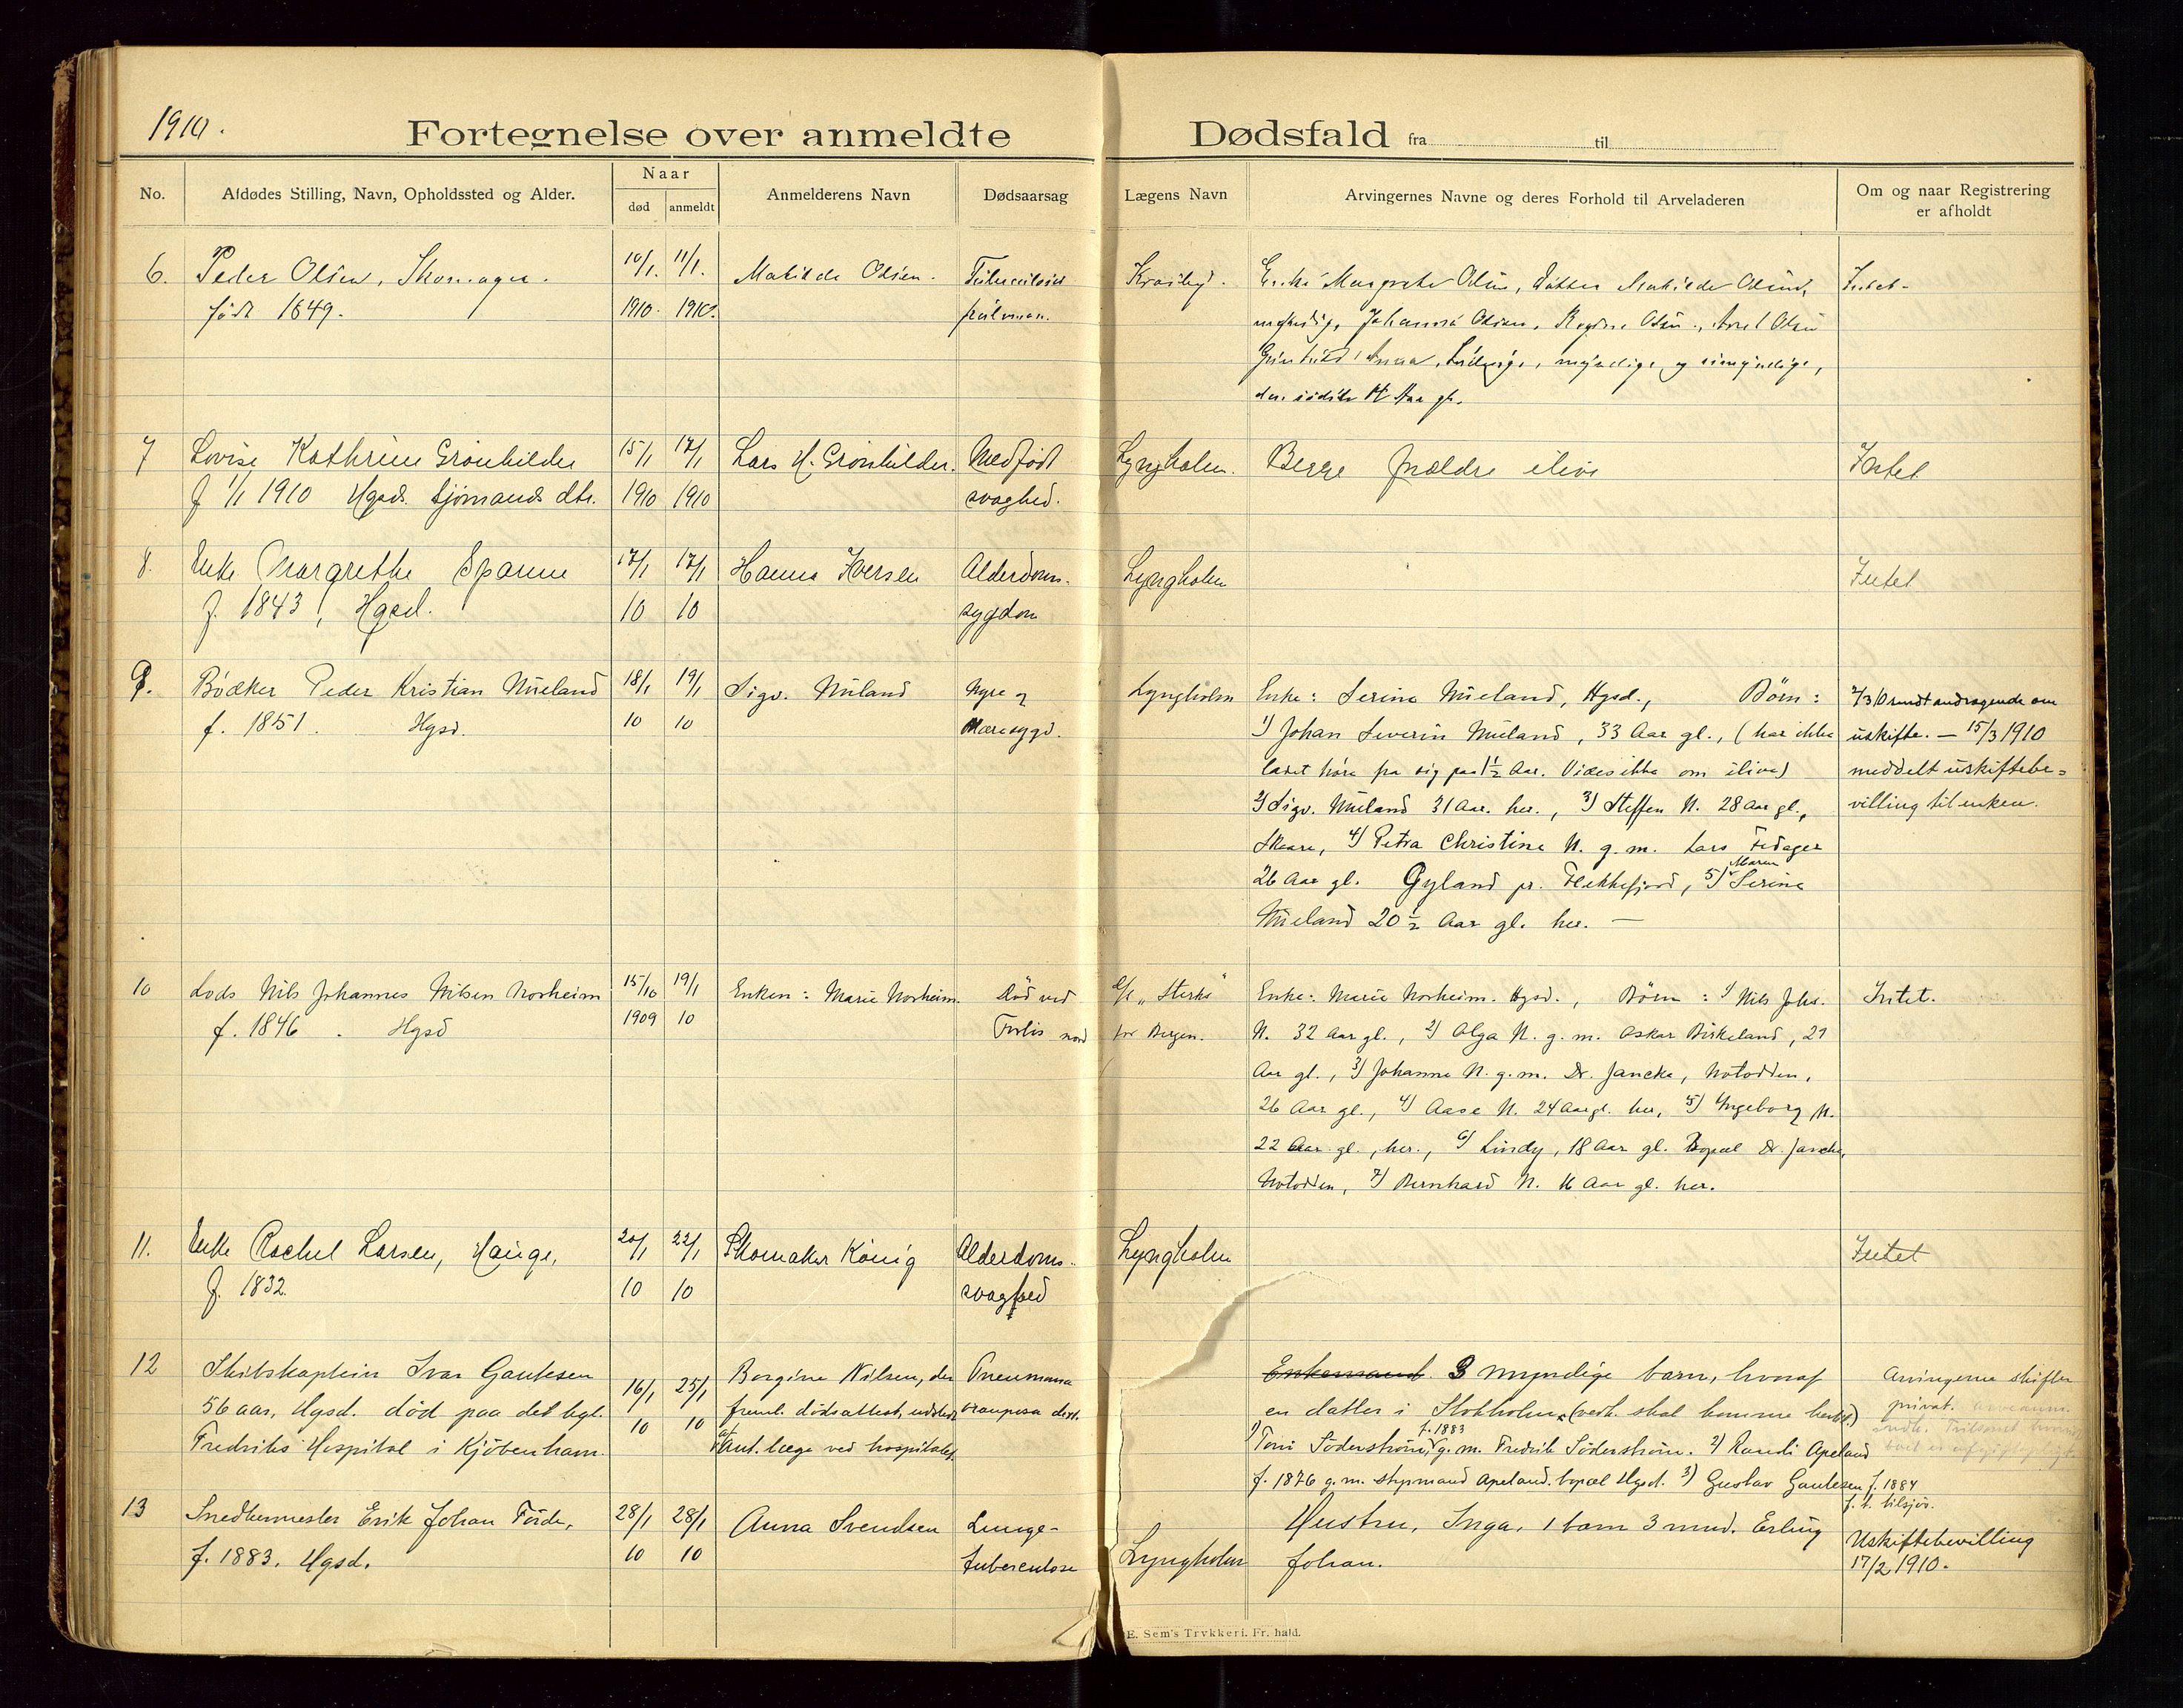 1910.
Fortegnelse over anmeldte Dødsfald fra til
No.
Afdødes Stilling, Navn, Opholdssted og Alder.
Naar
død
anmeldt
Anmelderens Navn
Dødsaarsag
Lægens Navn
Arvingernes Navne og deres Forhold til Arveladeren
Om og naar Registrering
er afholdt
6. Peder Olsen, Skomager.
født 1849.
10/1. 11/1.
1910. 1910.
Matilde Olsen.
Tuberculosis
pulman.
Enke Margrete Olsen, datter Mathilde Olsen,
myndig, Johanna Olsen, Olsen
Anna, myndige og umyndige,
Aar gl.
Intet.
7 Lovise Kathrine Grønhilder
f 1/1 1910 Hgsd. Sjømands dtr.
15/1 17/1
1910 1910
Lars H. Grønhilder.
Medfødt
svaghed.
Lyngholm.
Begge forældre ilive
Intet
8. Enke Margrethe Spanne
f. 1843, Hgsd.
17/1 17/1
10 10
Hanna Iversen
Alderdoms-
sygdom
Lyngholm
Intet
9. Bødker Peder Kristian Nüeland
f. 1851. Hgsd.
18/1 19/1
10 10
Sigv. Nüland
Nyre og
sygd.
Lyngholm
Enke: Serine Nüeland, Hgsd., Børn:
1) Johan Severin Nüeland, 33 Aar gl., (har ikke
ladet høre fra sig paa 1 1/2 Aar. Vides ikke om ilive)
2) Sigv. Nüeland 31 Aar. her., 3) Steffen N. 28 Aar gl.,
Skaare, 4) Petra Christine N. g.m. Lars Fedager
26 Aar gl. Gyland pr. Flekkefjord, 5) Maren Serine
Nüeland 20 1/2 Aar gl. her. —
andragende om
uskifte. — 15/3 1910
meddelt uskiftebe-
villing til enken.
10 Lods Nils Johannes Nilsen Norheim
f. 1846. Hgsd
15/10 19/1
1909 10
Enken: Marie Norheim.
Død ved
Forlis nord
"Sterk"
for Bergen.
Enke: Marie Norheim. Hgsd., Børn: 1) Nils Johs.
N. 32 Aar gl., 2) Olga N. g.m. Oskar Birkeland, 29
Aar gl., 3) Johanna N. g.m. Dr. Jancke, Notodden,
26 Aar gl., 4) Aase N. 24 Aar gl. her, 5) Ingeborg N.
22 Aar gl., her., 6) Lindy, 18 Aar gl. Bopæl Dr. Jancke,
Notodden, 7) Bernhard N. 16 Aar gl. her.
Intet.
11. Enke Rachel Larsen, Hauge,
f. 1832.
20/1 22/1
10 10
Skomaker König
Alderdoms-
svaghed
Lyngholm
Intet
12 Skibskaptein Ivar Gautesen
56 aar, Hgsd. død paa det kgl.
Fredriks Hospital i Kjøbenham.
16/1 25/1
10 10
Borgine Nilsen, der
freml. dødsattest, udstedt
af Ant. læge ved hospitalet.
Pneumonia
crouposa dext.
Enkemand. 3 myndige barn, hvoraf
en datter i Stokholm (vedk. skal komme hertil.)
1) Toni Söderström, f. 1883 g.m. Fredrik Söderström. 2) Randi Apeland
f. 1876 g.m. styrmand Apeland. bopæl Hgsd. 3) Gustav Gautesen f. 1884
f.t. tilsjøs.
Arvingerne skifter
privat.
13 Snedkermester Erik Johan Førde,
f. 1883. Hgsd.
28/1 28/1
10 10
Anna Svendsen
Lunge-
tuberculose
Lyngholm
Hustru, Inga, 1 barn 3 mnd. Erling
Johan.
Uskiftebevilling
17/2 1910.
E. Sem's Trykkeri. Fr. hald.